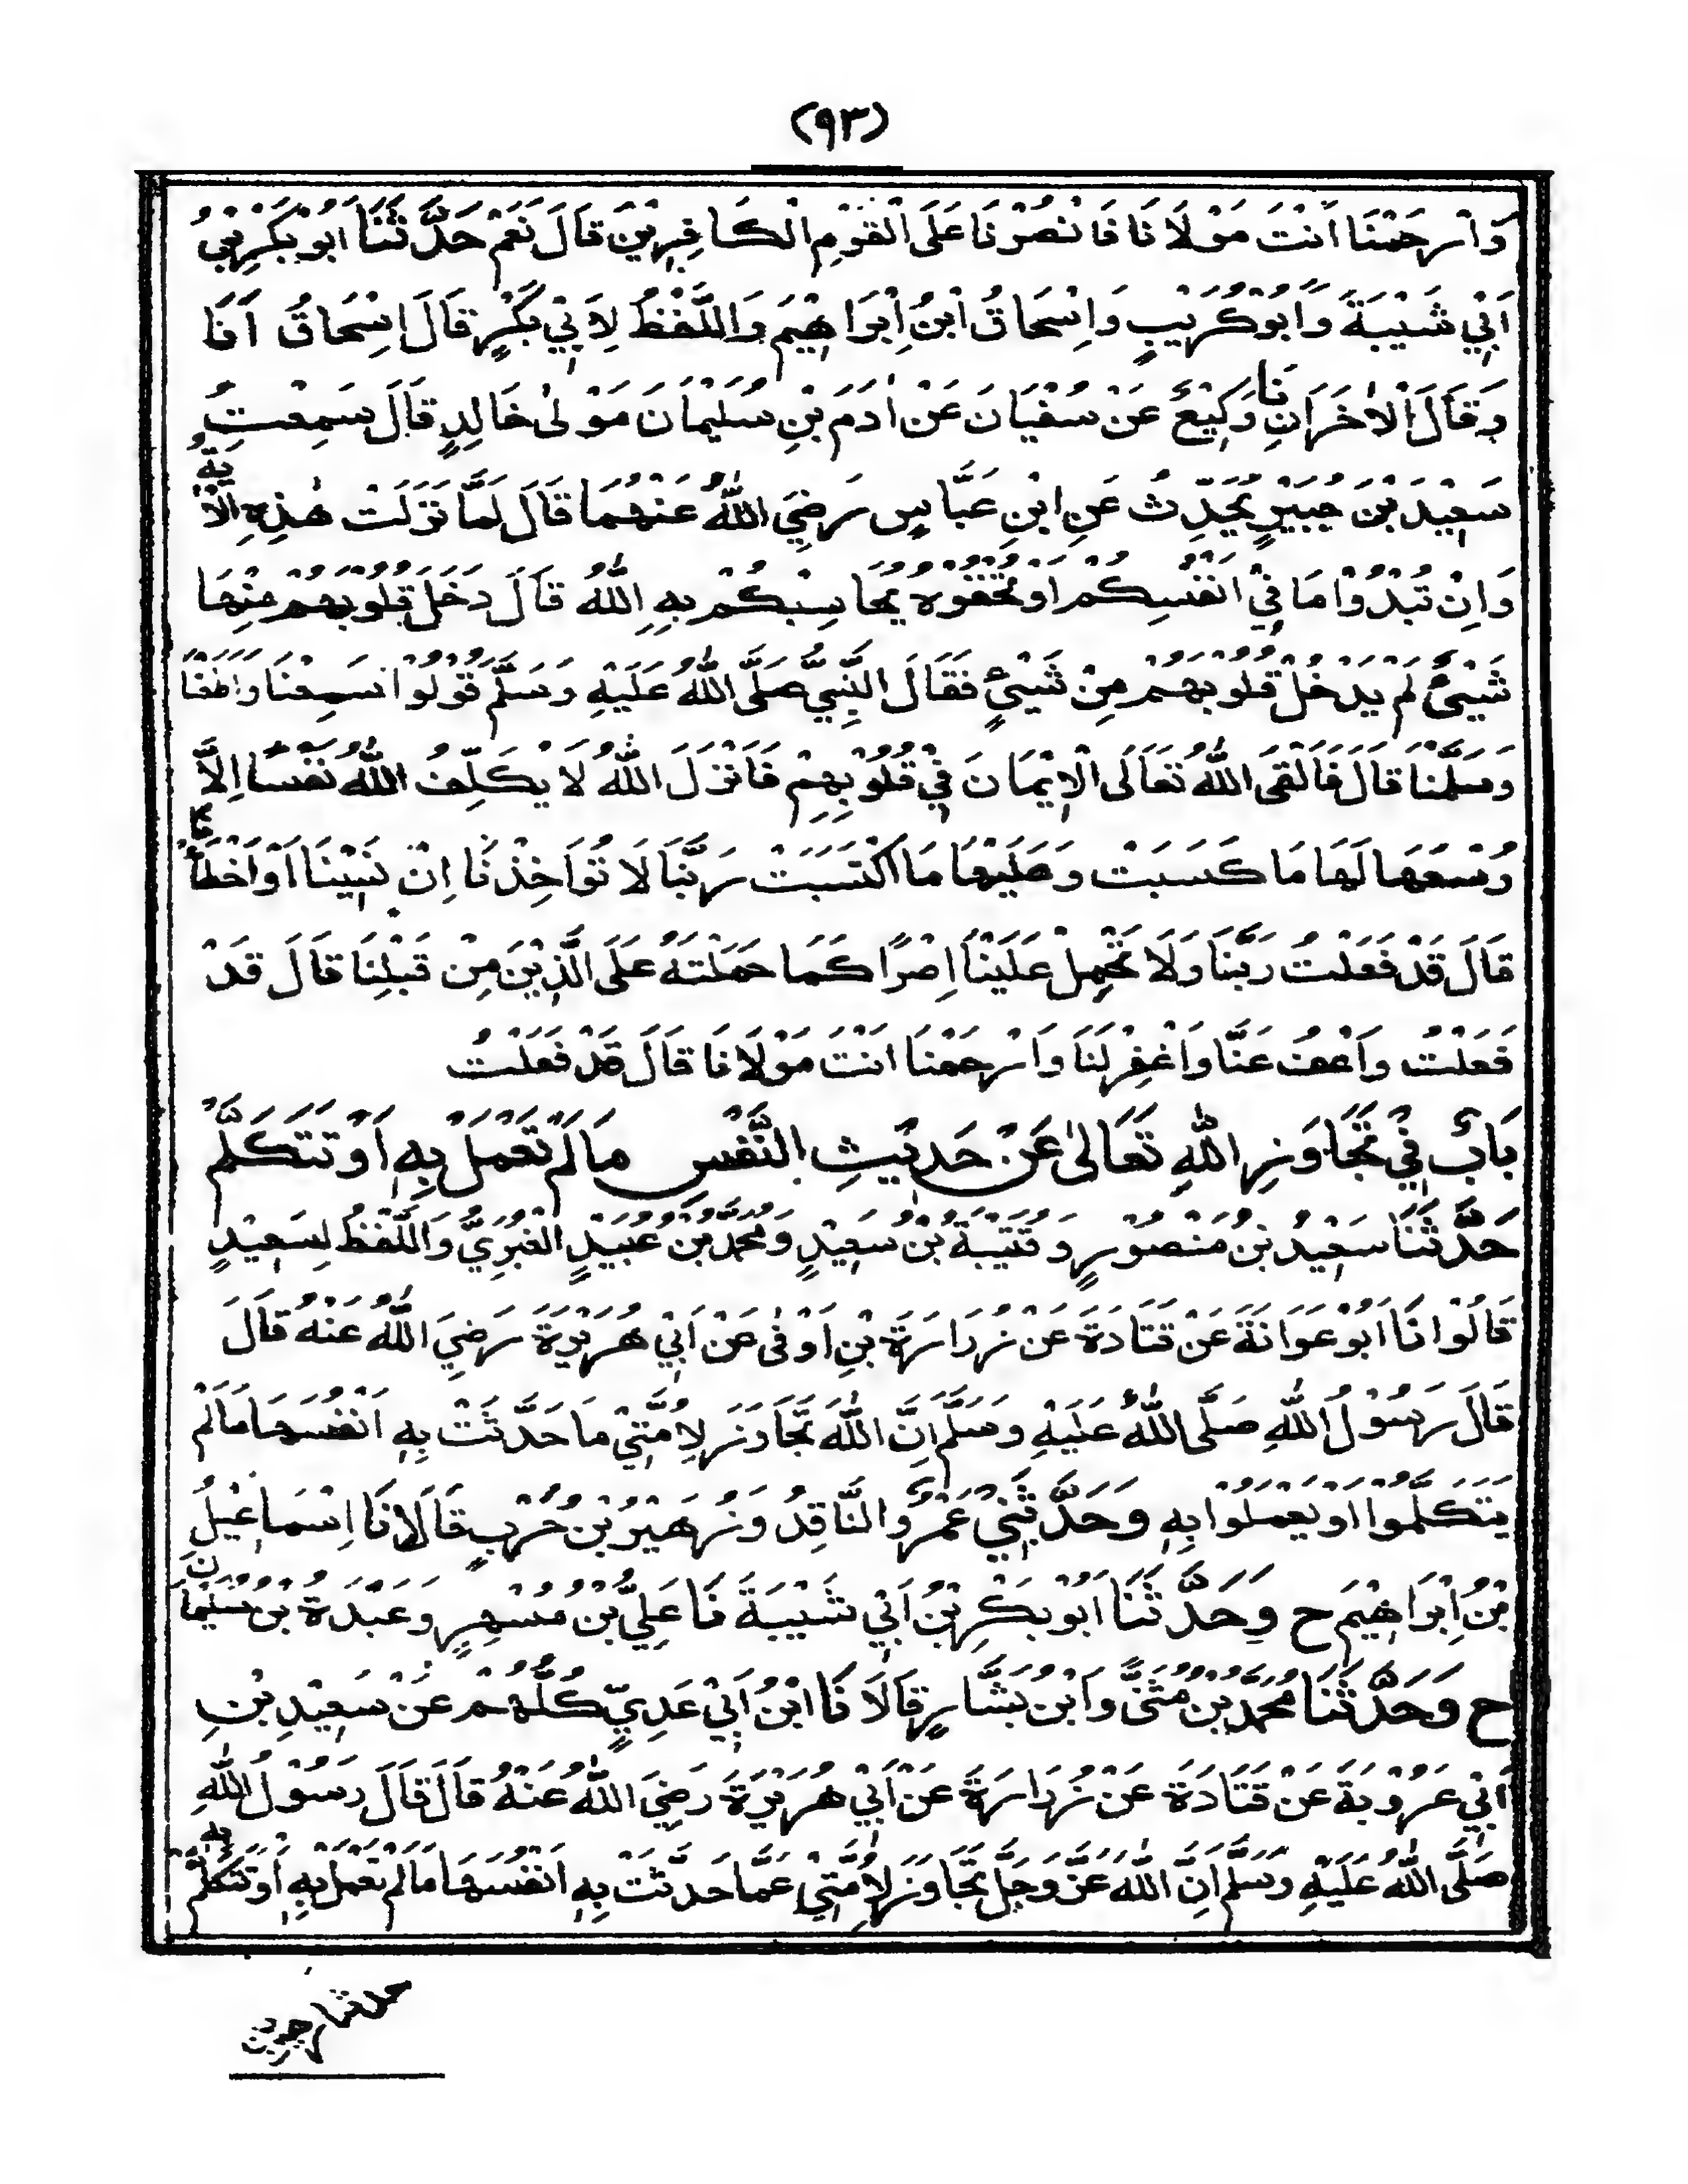 (٩٣)
وَارْحَمْنَا اَنْتَ مَوْلَانَا فَانْصُرْنَا عَلَى الْقَوْمِ الْكَافِرِيْنَ قَالَ نَعَمْ حَدَّثَنَا اَبُوْ بَكْرِ بْنُ
اَبِيْ شَيْبَةَ وَاَبُوْ كُرَيْبٍ وَاِسْحَاقُ ابْنُ اِبْرَاهِيْمَ وَاللَّفْظُ لِاَبِيْ بَكْرٍ قَالَ اِسْحَاقُ اَنَا
وَقَالَ الْاٰخَرَانِ نَا وَكِيْعٌ عَنْ سُفْيَانَ عَنْ اٰدَمَ بْنِ سُلَيْمَانَ مَوْلٰى خَالِدٍ قَالَ سَمِعْتُ
سَعِيْدَ بْنَ جُبَيْرٍ يُحَدِّثُ عَنِ ابْنِ عَبَّاسٍ رَضِيَ اللهُ عَنْهُمَا قَالَ لَمَّا نَزَلَتْ هٰذِهِ الْاٰيَةُ
وَاِنْ تُبْدُوْا مَا فِيْ اَنْفُسِكُمْ اَوْ تُخْفُوْهُ يُحَاسِبْكُمْ بِهِ اللهُ قَالَ دَخَلَ قُلُوْبَهُمْ مِنْهَا
شَيْئٌ لَمْ يَدْخُلْ قُلُوْبَهُمْ مِنْ شَيْئٍ فَقَالَ النَّبِيُّ صَلَّى اللهُ عَلَيْهِ وَسَلَّمَ قُوْلُوْا سَمِعْنَا وَاَطَعْنَا
وَسَلَّمْنَا قَالَ فَاَلْقَى اللهُ تَعَالَى الْاِيْمَانَ فِيْ قُلُوْبِهِمْ فَاَنْزَلَ اللهُ لَا يُكَلِّفُ اللهُ نَفْسًا اِلَّا
وُسْعَهَا لَهَا مَا كَسَبَتْ وَعَلَيْهَا مَا اكْتَسَبَتْ رَبَّنَا لَا تُؤَاخِذْنَا اِنْ نَسِيْنَا اَوْ اَخْطَأْنَا
قَالَ قَدْ فَعَلْتُ رَبَّنَا وَلَا تَحْمِلْ عَلَيْنَا اِصْرًا كَمَا حَمَلْتَهُ عَلَى الَّذِيْنَ مِنْ قَبْلِنَا قَالَ قَدْ
فَعَلْتُ وَاعْفُ عَنَّا وَاغْفِرْ لَنَا وَارْحَمْنَا اَنْتَ مَوْلَانَا قَالَ قَدْ فَعَلْتُ
بَابٌ فِيْ تَجَاوُزِ اللهِ تَعَالٰى عَنْ حَدِيْثِ النَّفْسِ مَا لَمْ تَعْمَلْ بِهِ اَوْ تَتَكَلَّمْ
حَدَّثَنَا سَعِيْدُ بْنُ مَنْصُوْرٍ وَقُتَيْبَةُ بْنُ سَعِيْدٍ وَمُحَمَّدُ بْنُ عُبَيْدٍ الْغُبَرِيُّ وَاللَّفْظُ لِسَعِيْدٍ
قَالُوْا نَا اَبُوْ عَوَانَةَ عَنْ قَتَادَةَ عَنْ زُرَارَةَ بْنِ اَوْفٰى عَنْ اَبِيْ هُرَيْرَةَ رَضِيَ اللهُ عَنْهُ قَالَ
قَالَ رَسُوْلُ اللهِ صَلَّى اللهُ عَلَيْهِ وَسَلَّمَ اِنَّ اللهَ تَجَاوَزَ لِاُمَّتِيْ مَا حَدَّثَتْ بِهِ اَنْفُسَهَا مَا لَمْ
يَتَكَلَّمُوْا اَوْ يَعْمَلُوْا بِهِ وَحَدَّثَنِيْ عَمْرٌو النَّاقِدُ وَزُهَيْرُ بْنُ حَرْبٍ قَالَا نَا اِسْمَاعِيْلُ
بْنُ اِبْرَاهِيْمَ ح وَحَدَّثَنَا اَبُوْ بَكْرِ بْنُ اَبِيْ شَيْبَةَ نَا عَلِيُّ بْنُ مُسْهِرٍ وَعَبْدَةُ بْنُ سُلَيْمَانَ
ح وَحَدَّثَنَا مُحَمَّدُ بْنُ مُثَنَّى وَابْنُ بَشَّارٍ قَالَا نَا ابْنُ اَبِيْ عَدِيٍّ كُلُّهُمْ عَنْ سَعِيْدِ بْنِ
اَبِيْ عَرُوْبَةَ عَنْ قَتَادَةَ عَنْ زُرَارَةَ عَنْ اَبِيْ هُرَيْرَةَ رَضِيَ اللهُ عَنْهُ قَالَ قَالَ رَسُوْلُ اللهِ
صَلَّى اللهُ عَلَيْهِ وَسَلَّمَ اِنَّ اللهَ عَزَّ وَجَلَّ تَجَاوَزَ لِاُمَّتِيْ عَمَّا حَدَّثَتْ بِهِ اَنْفُسَهَا مَا لَمْ تَعْمَلْ بِهِ اَوْ تَتَكَلَّمْ بِهِ